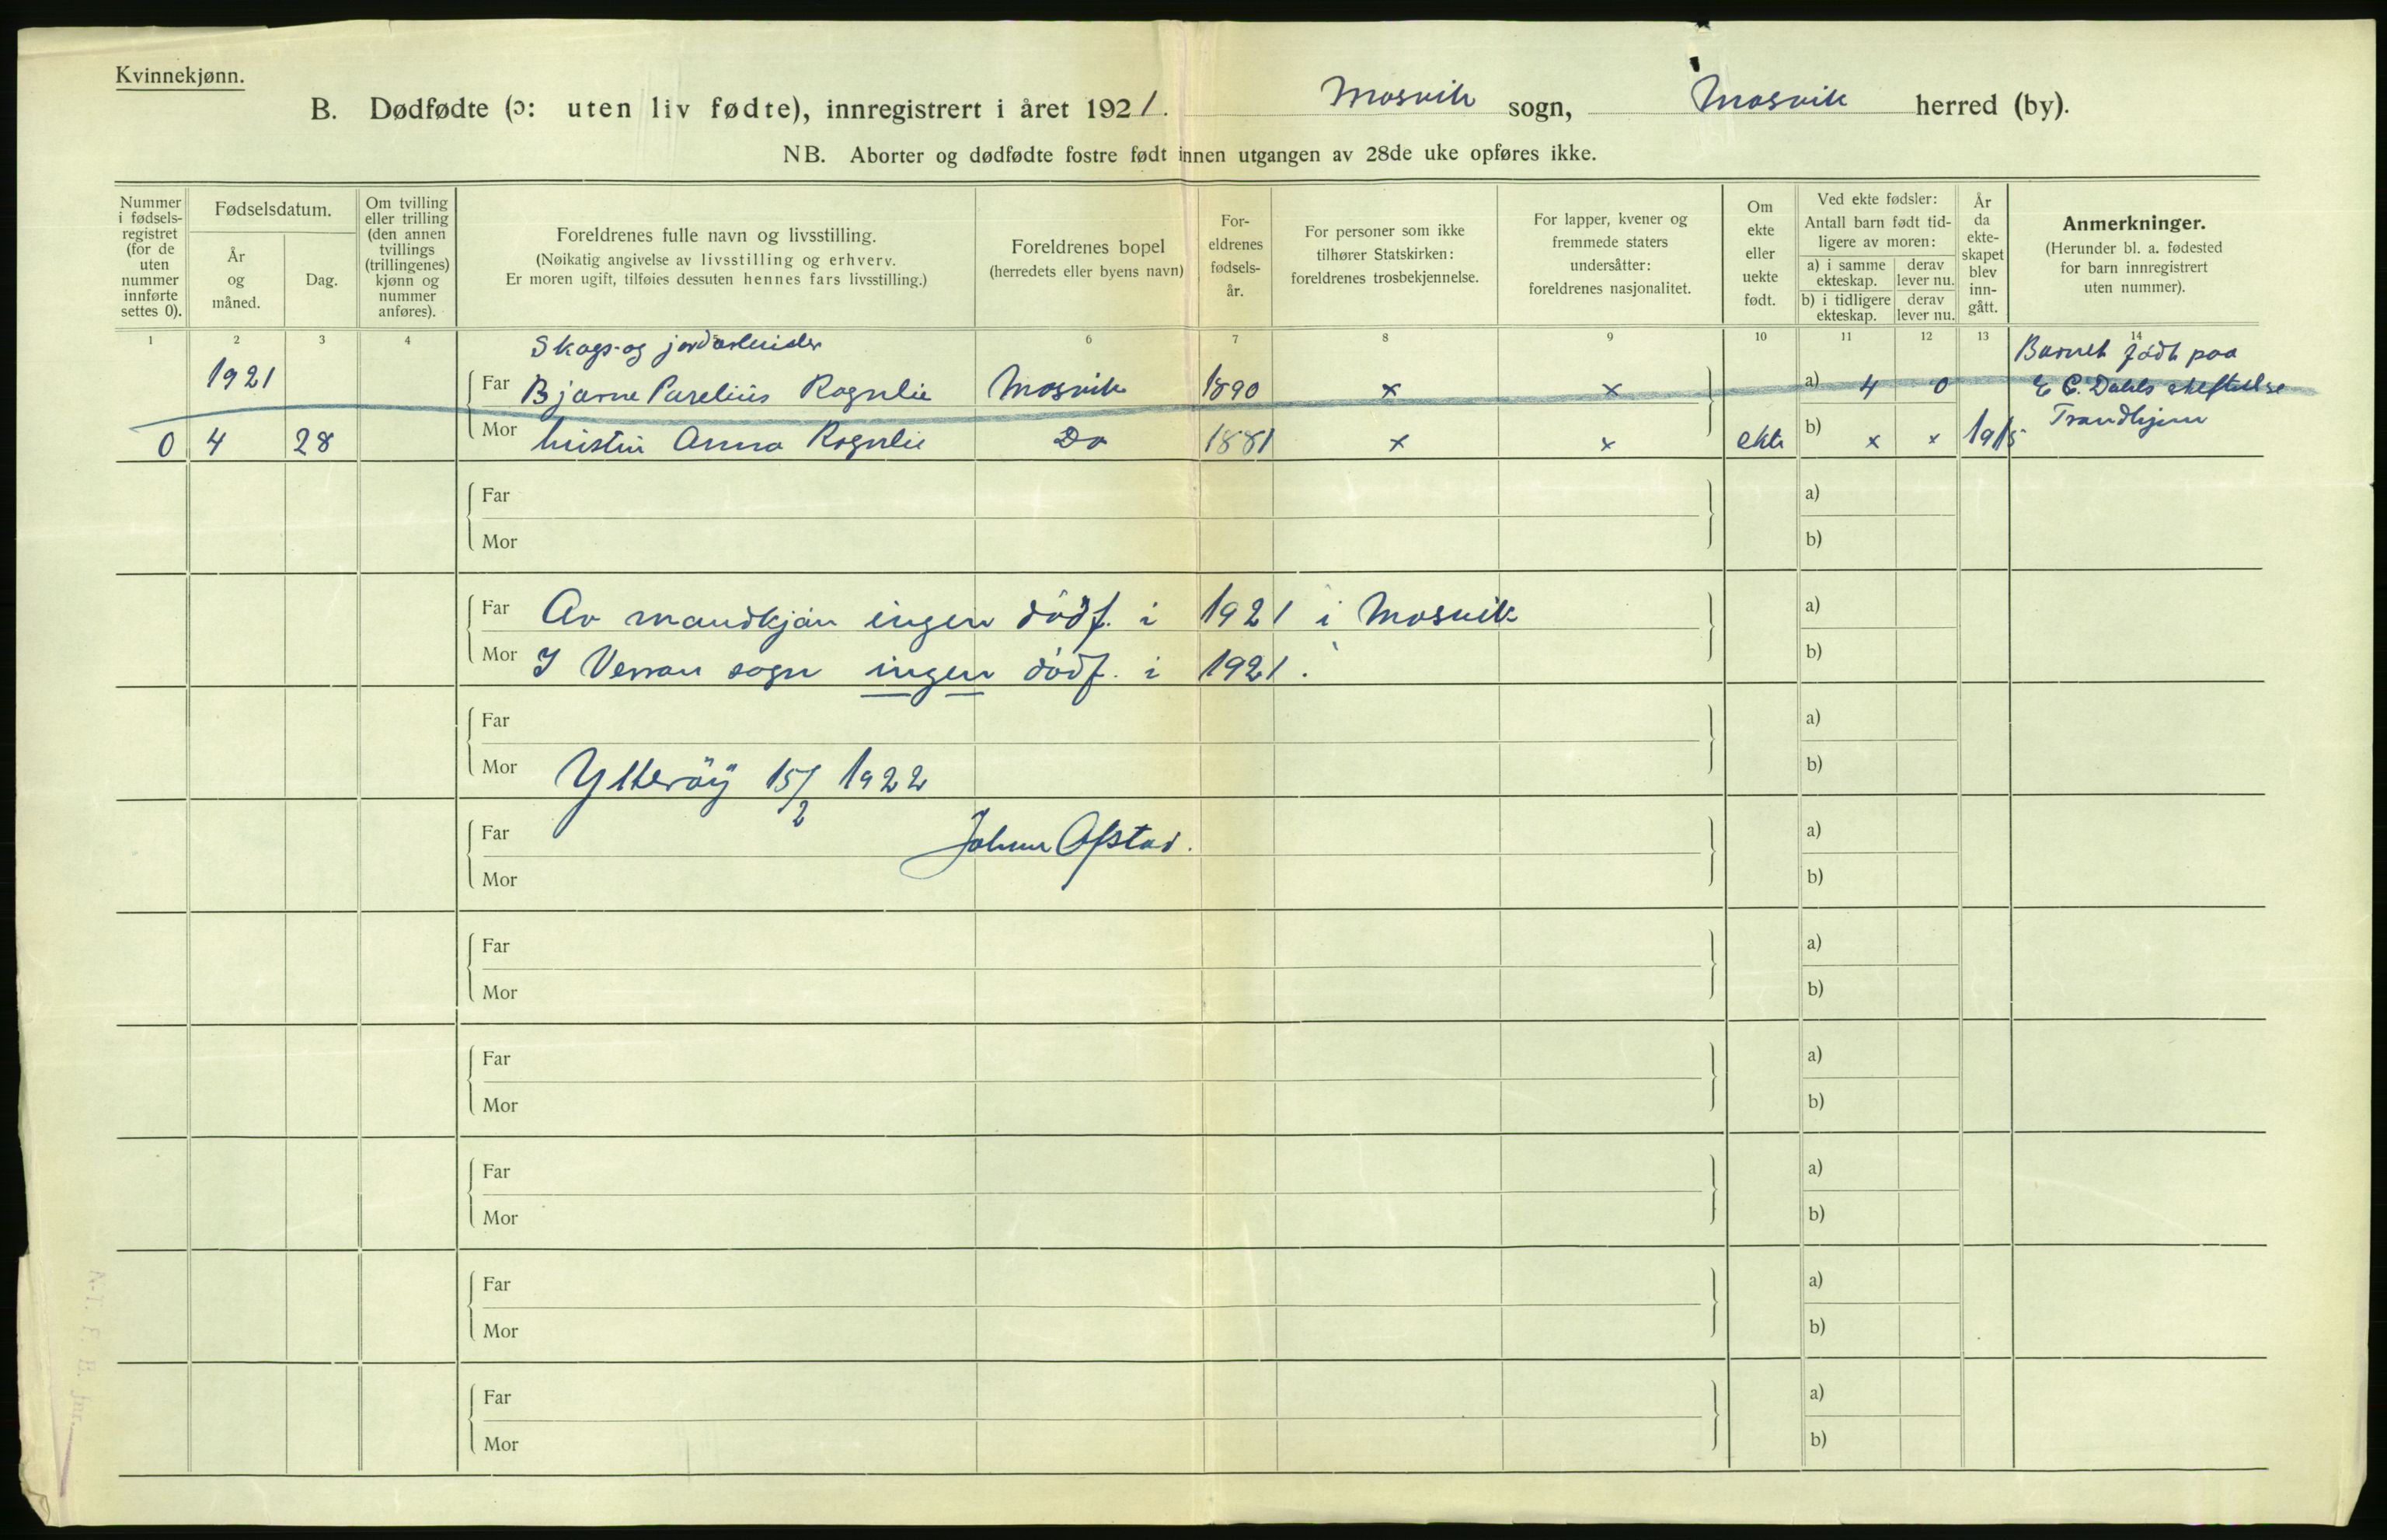 Kvinnekjønn.
B. Dødfødte (ɔ: uten liv fødte), innregistrert i året 1921. Mosvik sogn, Mosvik herred (by).
NB. Aborter og dødfødte fostre født innen utgangen av 28de uke opføres ikke.
Nummer i fødsels-registret (for de uten nummer innførte settes 0).
Fødselsdatum.
År og måned.
Dag.
Om tvilling eller trilling (den annen tvillings (trillingenes) kjønn og nummer anføres).
Foreldrenes fulle navn og livsstilling.
(Nøikatig angivelse av livsstilling og erhverv.
Er moren ugift, tilføies dessuten hennes fars livsstilling.)
Foreldrenes bopel
(herredets eller byens navn)
For-eldrenes fødsels-år.
For personer som ikke tilhører Statskirken: foreldrenes trosbekjennelse.
For lapper, kvener og fremmede staters undersåtter: foreldrenes nasjonalitet.
Om ekte eller uekte født.
Ved ekte fødsler:
Antall barn født tid-ligere av moren:
a) i samme ekteskap.
derav lever nu.
b) i tidligere ekteskap.
derav lever nu.
År da ekte-skapet blev inn-gått.
Anmerkninger.
(Herunder bl. a. fødested for barn innregistrert uten nummer).
1 2 3 4 6 7 8 9 10 11 12 13 14
Skogs- og jordarbeider
Barnet født paa
1921 Far Bjarne Parelius Rognlie Mosvik 1890 x x a) 4 0 E C. Dahls stiftelse
Trondhjem
0 4 28 Mor Kristin Anna Rognlie Do 1881 x x ekte b) x x 1915
Far a)
Mor b)
Far Av mandkjøn ingen dødf. i 1921 i Mosvik a)
Mor I Verran sogn ingen dødf. i 1921. b)
Far a)
Mor Ytterøy 15/2 1922 b)
Far Johan Ofstad. a)
Mor b)
Far a)
Mor b)
Far a)
Mor b)
Far a)
Mor b)
Far a)
Mor b)
Far a)
Mor b)